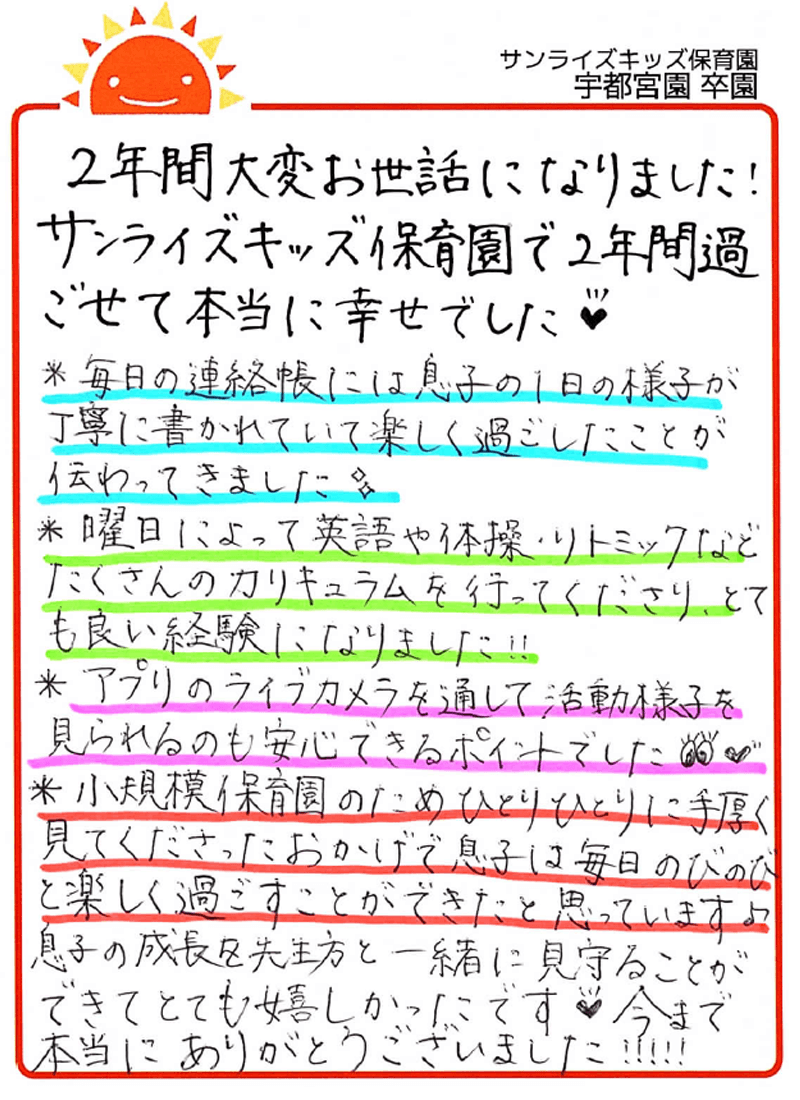 サンライズキッズ保育園
宇都宮園 卒園
2年間大変お世話になりました!
サンライズキッズ保育園で2年間過
ごせて本当に幸せでした♥
*毎日の連絡帳には息子の1日の様子が
丁寧に書かれていて楽しく過ごしたことが
伝わってきました
*曜日によって英語や体操・リトミックなど
たくさんのカリキュラムを行ってくださり、とて
も良い経験になりました!!
*アプリのライブカメラを通して活動様子を
見られるのも安心できるポイントでした♥
*小規模保育園のためひとりひとりに手厚く
見てくださったおかげで息子は毎日のびのび
と楽しく過ごすことができたと思っています♪
息子の成長を先生方と一緒に見守ることが
できてとても嬉しかったです♥今まで
本当にありがとうございました!!!!!